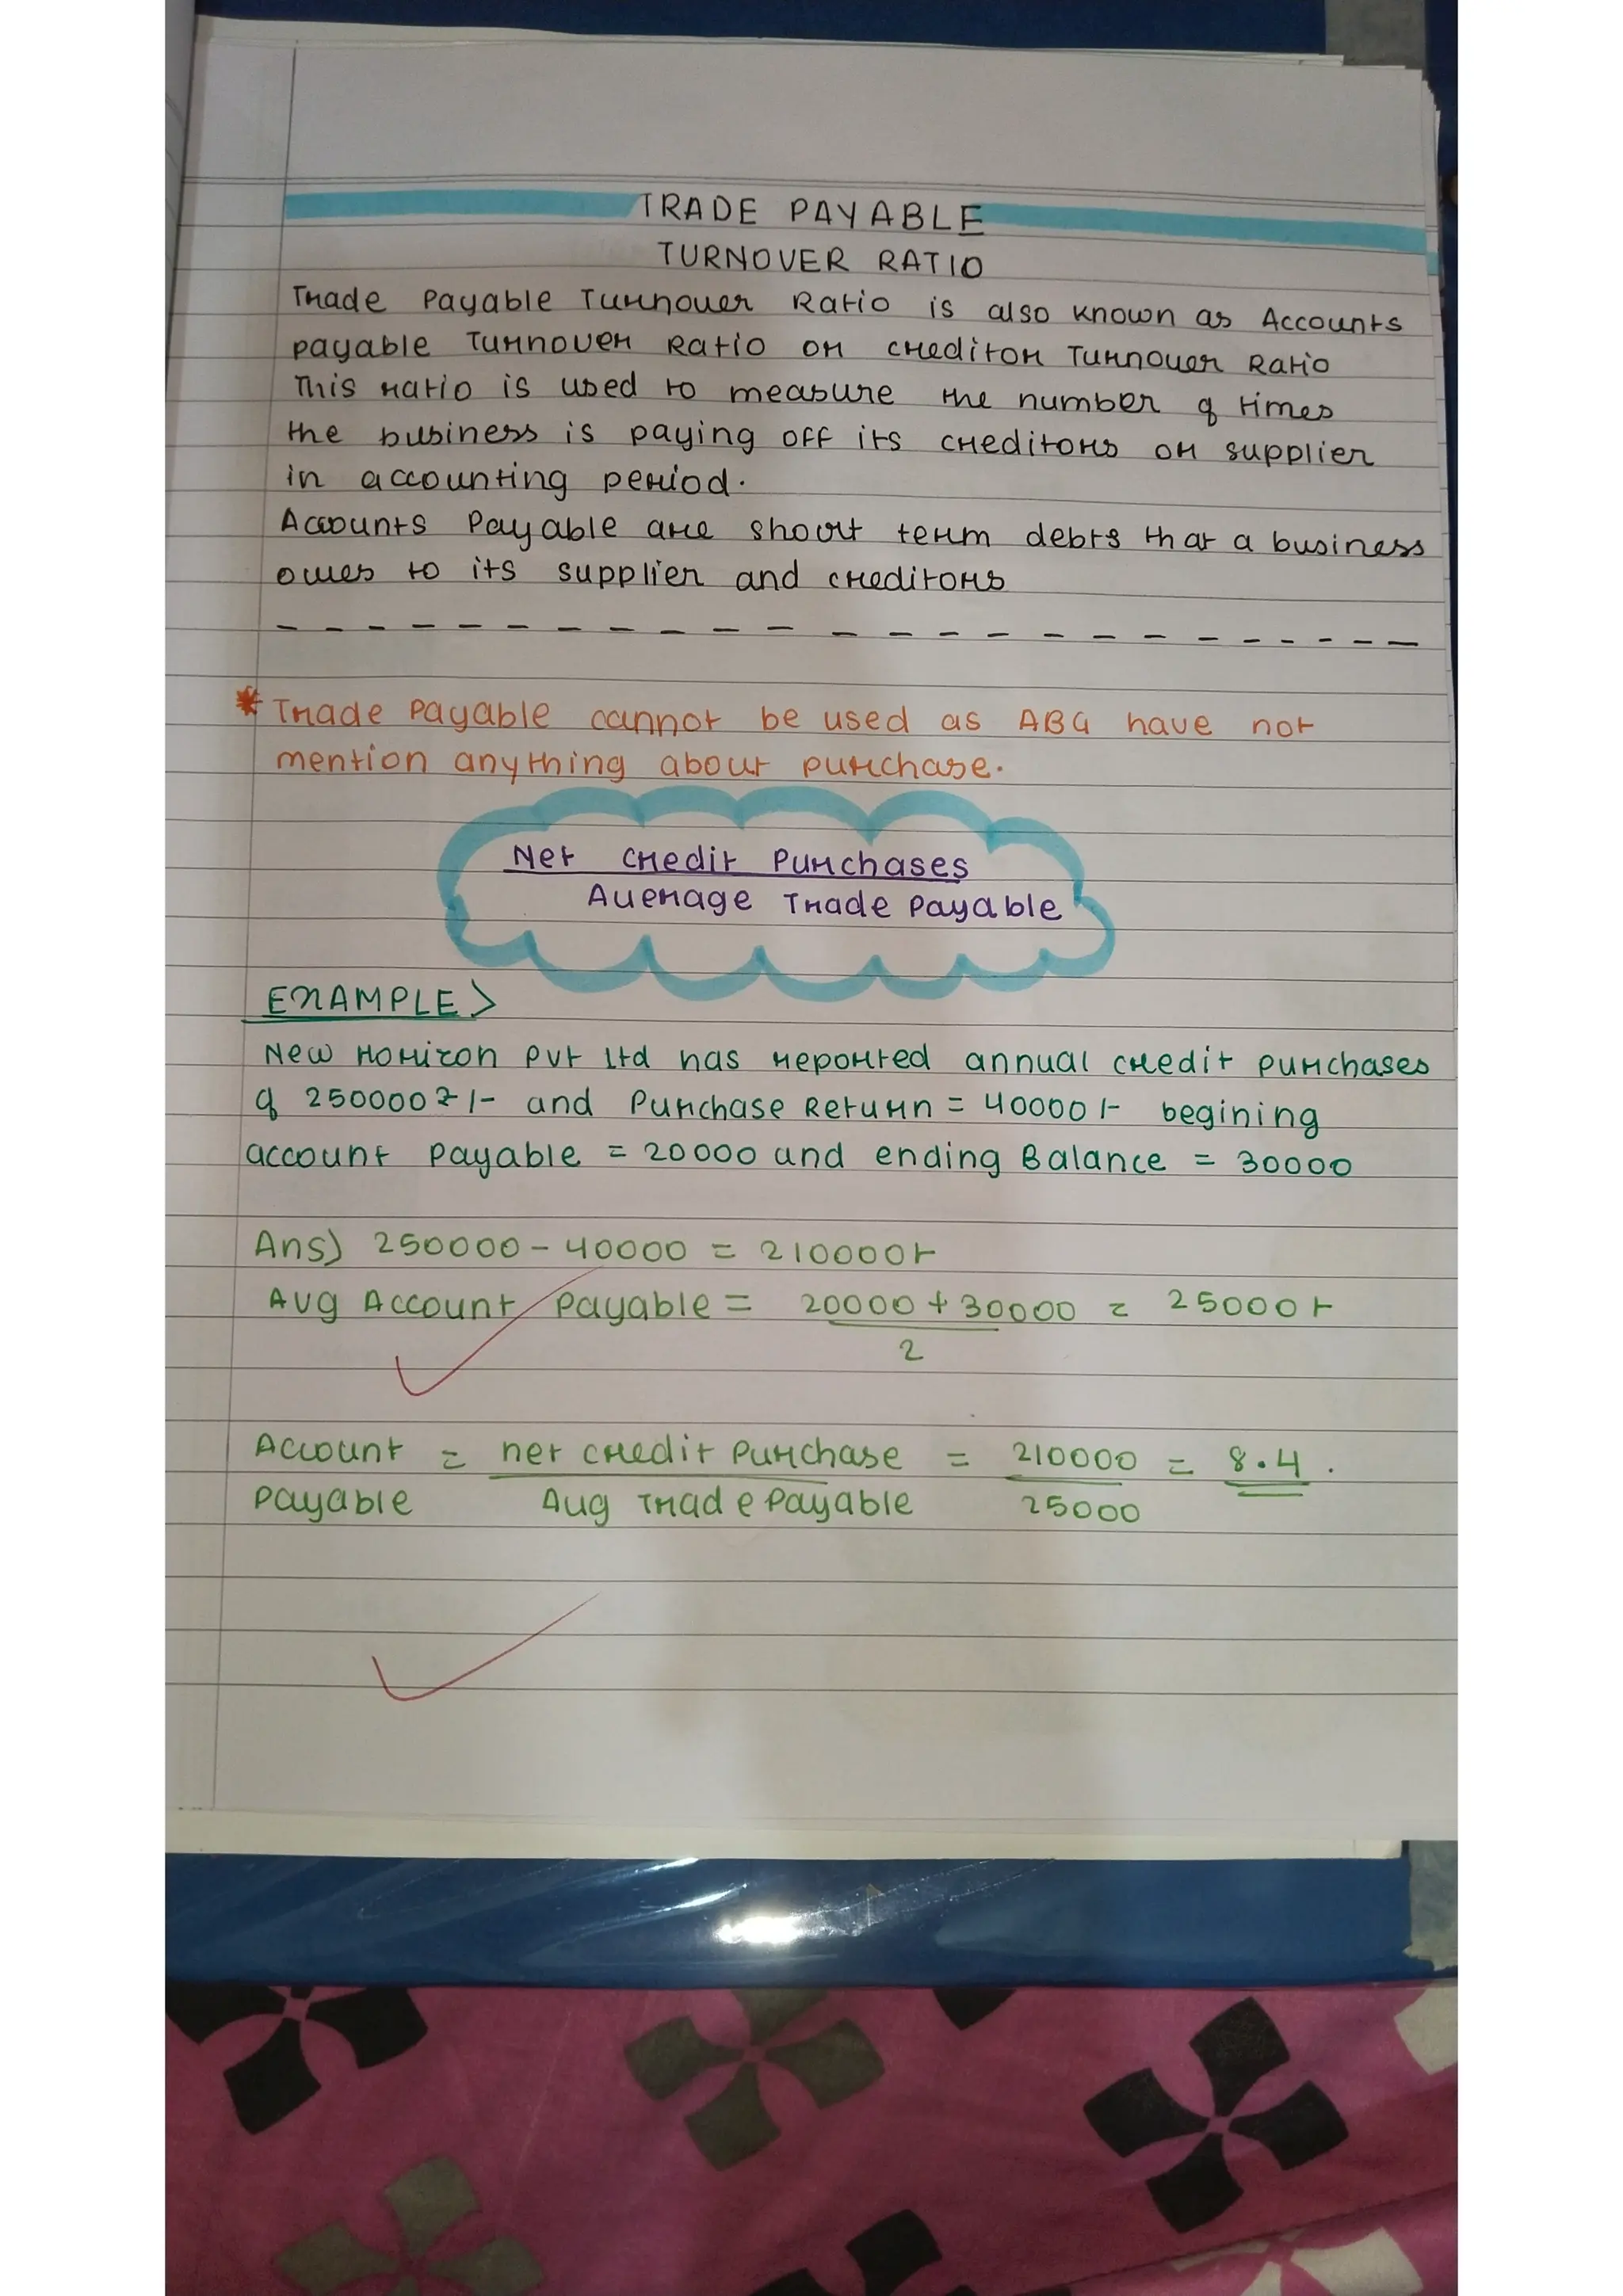 TRADE PAYABLE
TURNOVER RATIO
Trade Payable Turnover Ratio is also known as Accounts
payable Turnover Ratio or creditor Turnover Ratio
This ratio is used to measure the number of times
the business is paying off its creditors or supplier
in accounting period.
Accounts Payable are short term debts that a business
owes to its supplier and creditors
* Trade Payable cannot be used as ABG have not
mention anything about purchase.
Net Credit Purchases
Average Trade Payable
EXAMPLE >
New Horizon Pvt Ltd has reported annual credit purchases
of 250000₹/- and Purchase Return = 40000/- begining
account payable = 20000 and ending Balance = 30000
Ans) 250000 - 40000 = 210000/-
Avg Account Payable = 20000 + 30000 = 25000/-
2
Account = net credit Purchase = 210000 = 8.4.
Payable Avg Trade Payable 25000